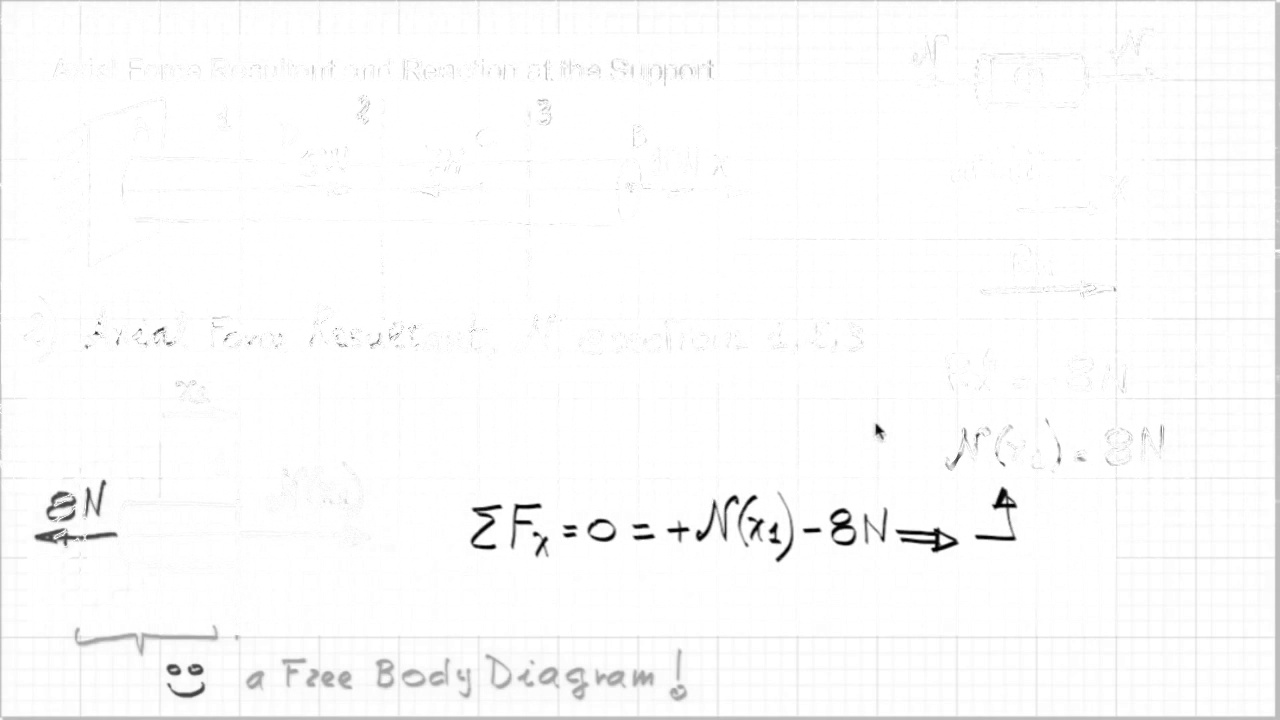 Axial Force Resultant and Reaction at the Support
N N
1 2 3
A D C B
x
2) Axial Force Resultant, N, @ sections 1, 2, 3
x1
8N
N(x1)
N(x1) = 8N
8N
ΣFx = 0 = +N(x1) - 8N ⇒
a Free Body Diagram!